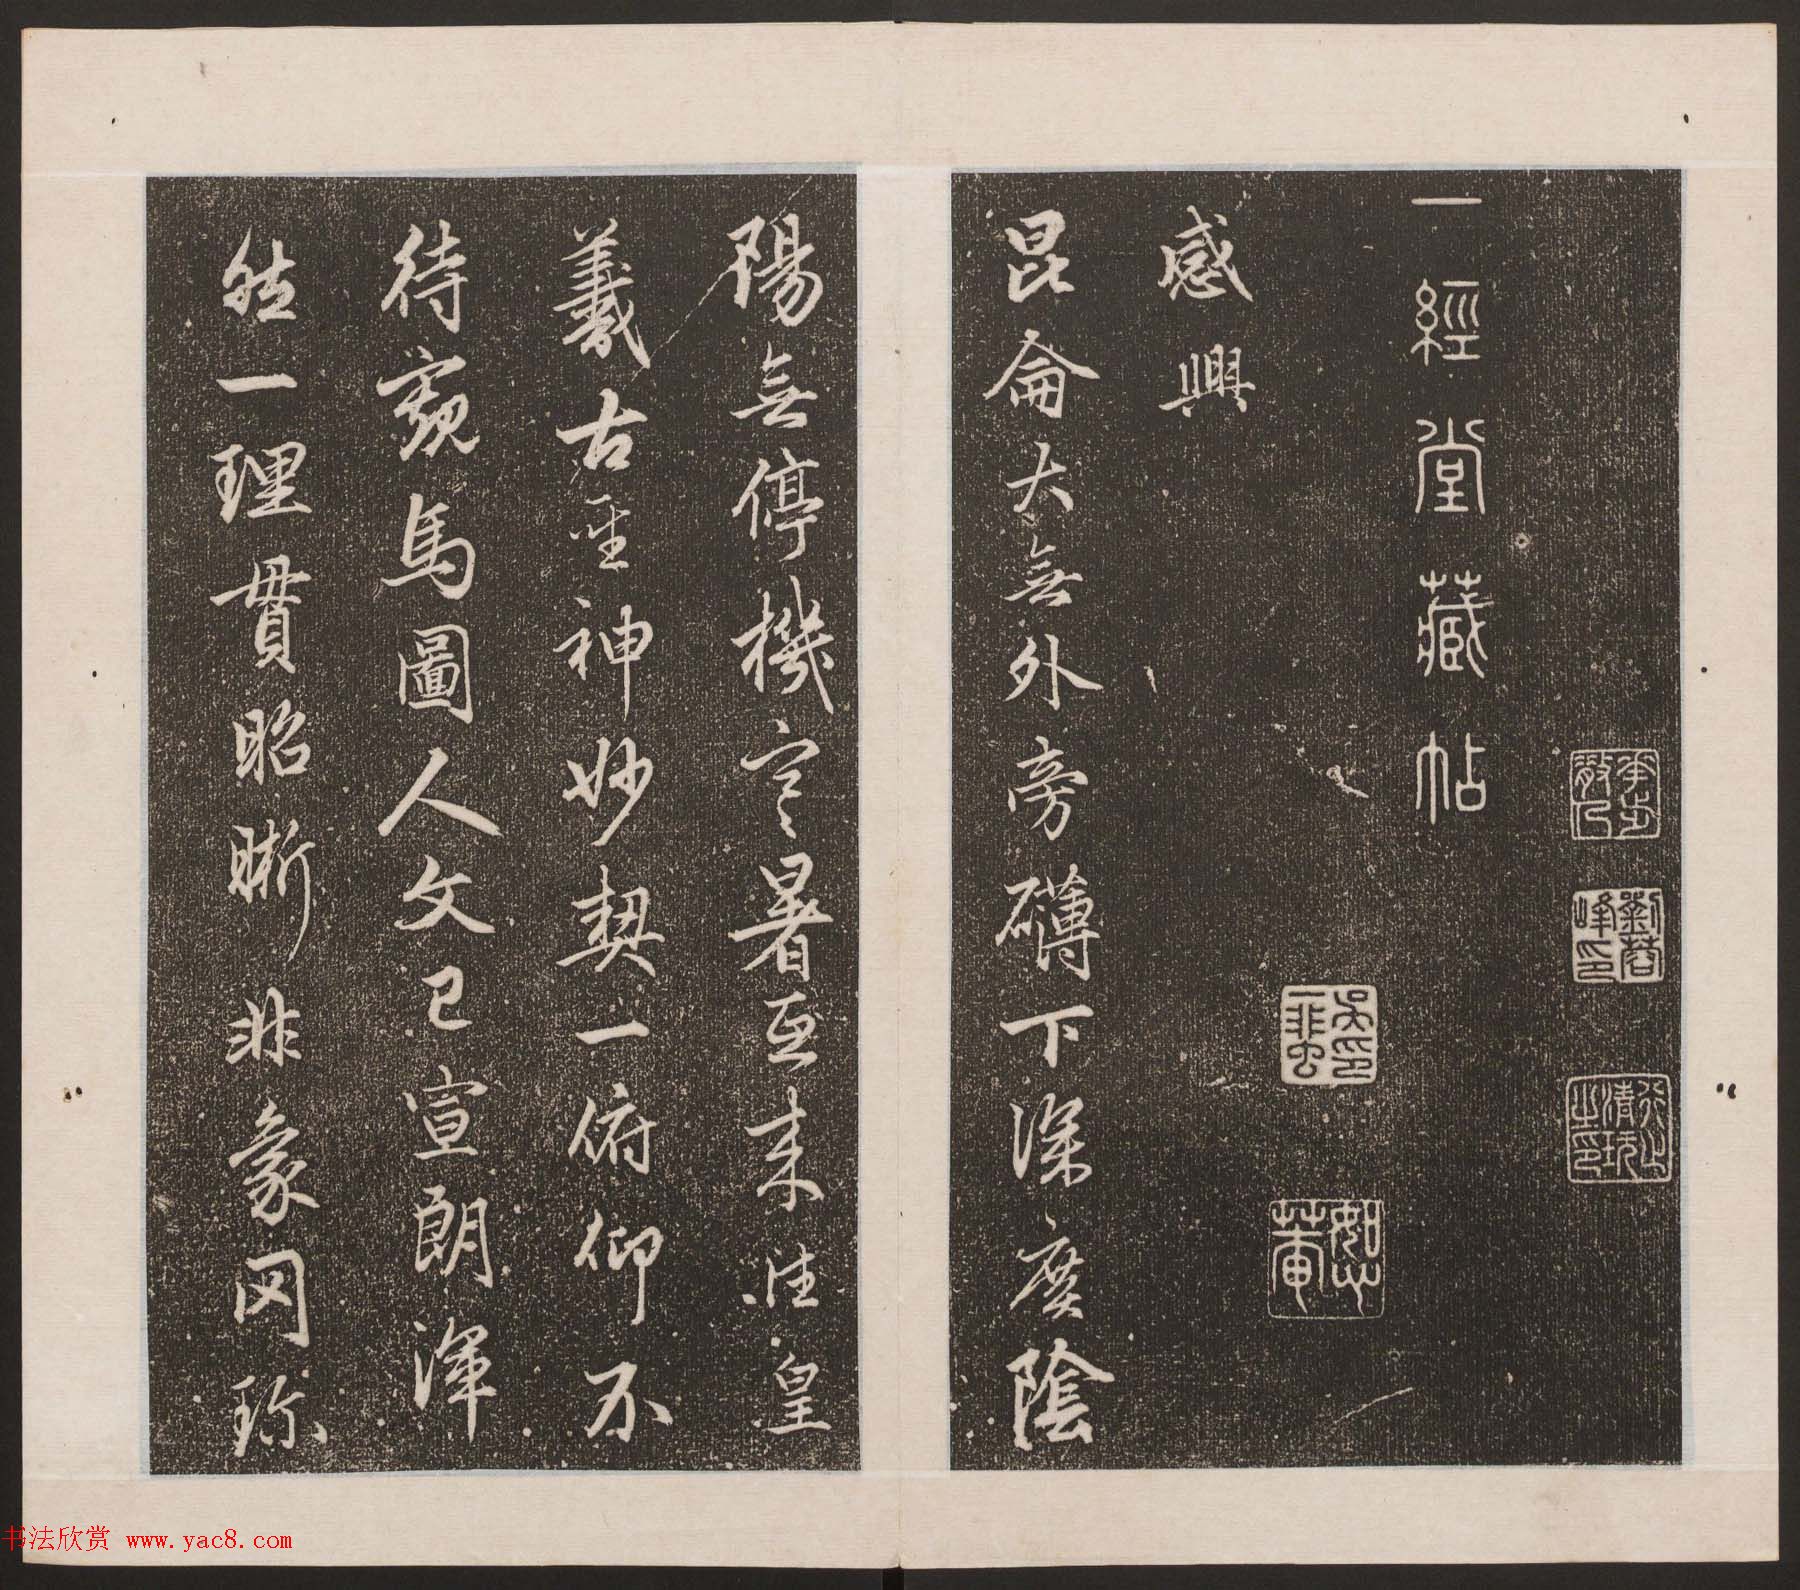 一經堂藏帖
劉蓉峰印
恕菴
感興
昆侖大無外旁礴下深廣陰
陽無停機寒暑互來往皇
羲古聖神妙契一俯仰不
待窺馬圖人文已宣朗渾
然一理貫昭晰非象罔珍
书法欣赏 www.yac8.com